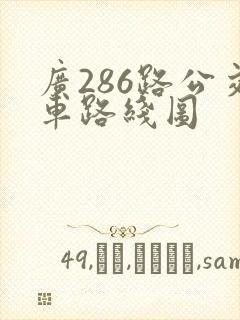 廣286路公交
車路綫圖
49,,,sam